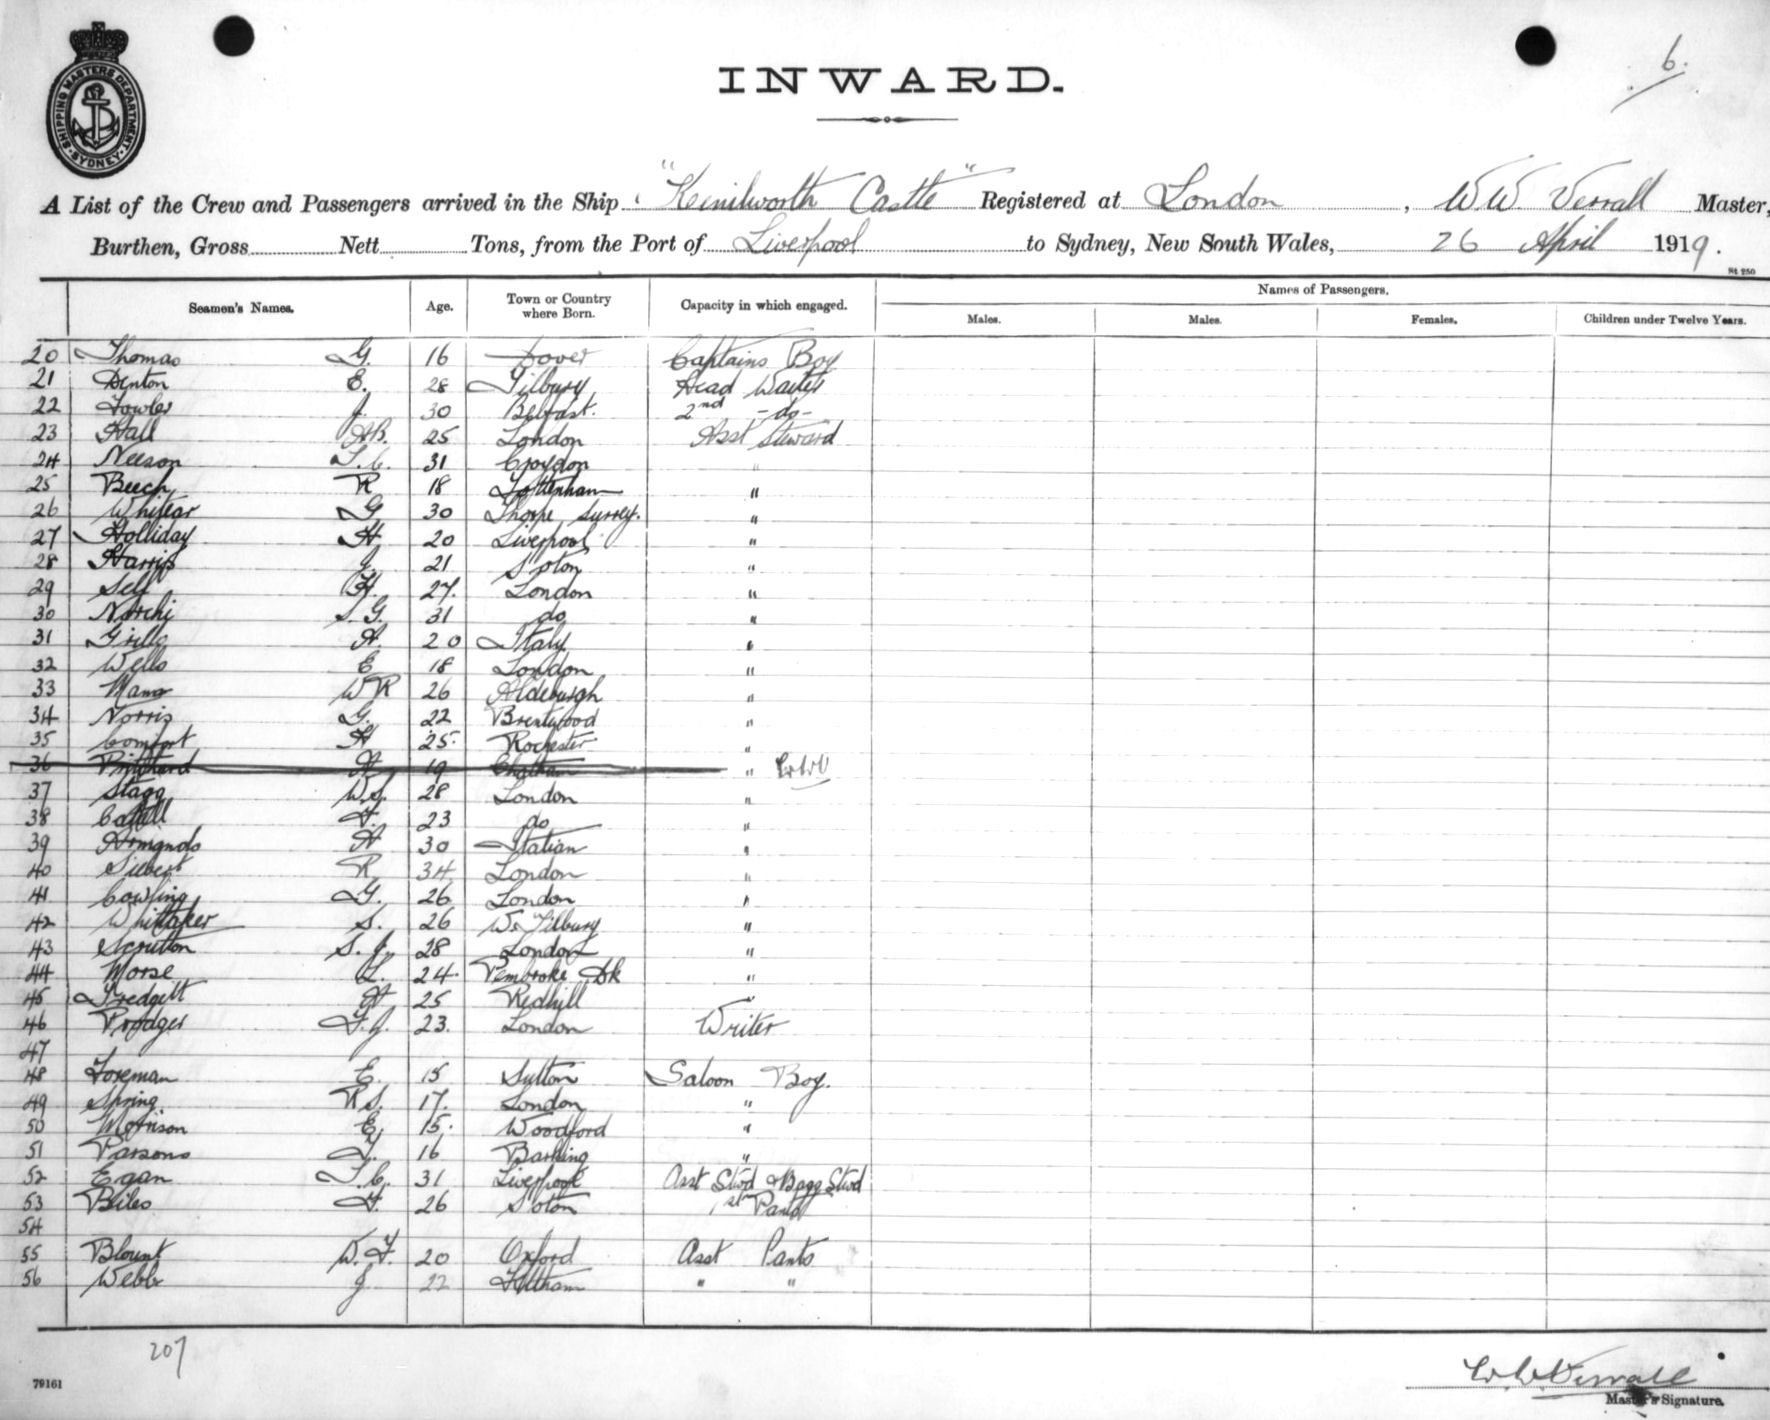 6.
SHIPPING MASTERS DEPARTMENT
SYDNEY
INWARD.
A List of the Crew and Passengers arrived in the Ship "Kenilworth Castle" Registered at London, W W Verrall Master,
Burthen, Gross Nett Tons, from the Port of Liverpool to Sydney, New South Wales, 26 April 1919.
St 250
Seamen's Names. Age. Town or Country where Born. Capacity in which engaged. Names of Passengers.
Males. Males. Females. Children under Twelve Years.
20 Thomas G. 16 Dover Captains Boy
21 Denton E. 28 Tilbury Head Waiter
22 Fowler J. 30 Belfast. 2nd -do-
23 Hall A.B. 25 London Asst Steward
24 Neeson T.C. 31 Croydon "
25 Beech R 18 Tottenham "
26 Whitear G 30 Thorpe Surrey. "
27 Holliday H 20 Liverpool "
28 Harris J 21 S'oton "
29 Self H. 27. London "
30 Norchi S.G. 31 do "
31 Grillo A. 20 Italy "
32 Wells E 18 London "
33 Mann W R 26 Aldeburgh "
34 Norris G. 22 Brentwood "
35 Comfort H 25. Rochester "
36 Pritchard A. 19 Chatham "
37 Stagg W.S. 28 London "
38 F. 23 do "
39 Armando A 30 Italian "
40 Siebert R 34 London "
41 Cowling G. 26 London "
42 Whittaker S. 26 W. Tilbury "
43 Scrutton S.J. 28 London "
44 Morse L. 24. Pembroke Dk "
45 Fredgett H 25 Redhill "
46 Prodger F.J. 23. London Writer
47
48 Foreman E. 15 Sutton Saloon Boy.
49 Spring R S. 17. London "
50 Morrison E. 15. Woodford "
51 Parsons 16 Barking "
52 Egan T.C. 31 Liverpool Asst Stwd & Bagg Stwd
53 Biles F. 26 S'oton 1st Pants
54
55 Blount W.F. 20 Oxford Asst Pants
56 Webb J 22 Feltham " "
207
79161
W.W. Verrall
Master's Signature.